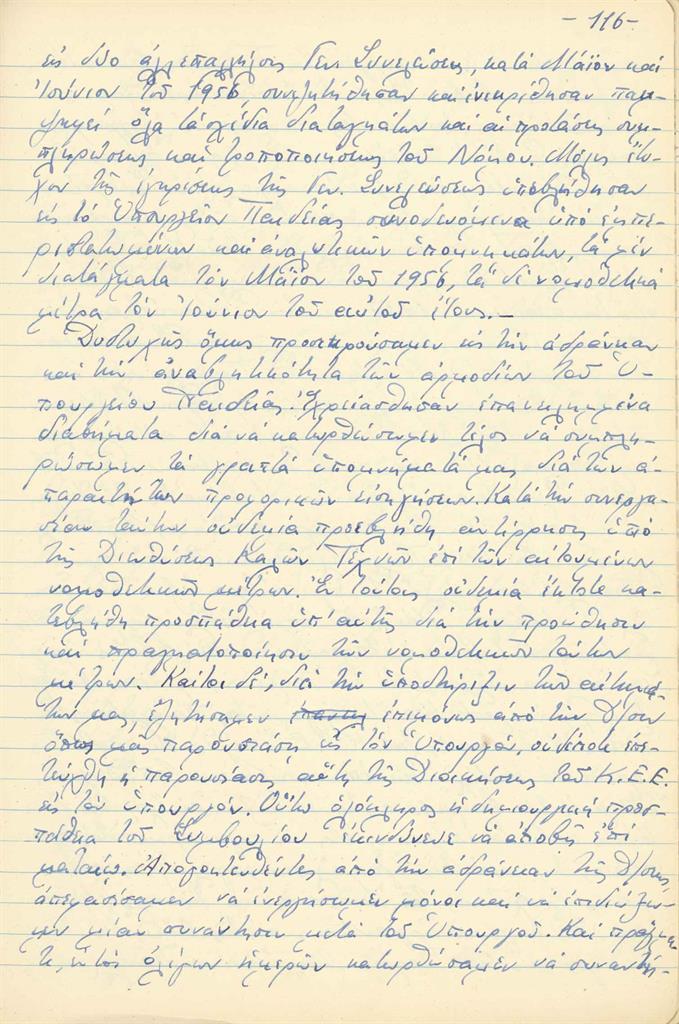 - 116 -
εἰς δύο ἀλλεπαλλήλους Γεν. Συνελεύσεις, κατά Μάϊον καί
Ἰούνιον τοῦ 1956, συνεζητήθησαν καί ἐνεκρίθησαν παμ-
ψηφεί ὅλα τά σχέδια διαταγμάτων καί αἱ προτάσεις συμ-
πληρώσεως καί τροποποιήσεως τοῦ Νόμου. Μόλις ἔτυ-
χον τῆς ἐγκρίσεως τῆς Γεν. Συνελεύσεως ὑπεβλήθησαν
εἰς τό Ὑπουργεῖον Παιδείας συνοδευόμενα ὑπό ἐμπε-
ριστατωμένων καί ἀναλυτικῶν ὑπομνημάτων, τά μέν
διατάγματα τόν Μάϊον τοῦ 1956, τά δέ νομοθετικά
μέτρα τόν Ἰούνιον τοῦ αὐτοῦ ἔτους.—
Δυστυχῶς ὅμως προσεκρούσαμεν εἰς τήν ἀδράνειαν
καί τήν ἀναβλητικότητα τῶν ἁρμοδίων τοῦ Ὑ-
πουργείου Παιδείας. Ἐχρειάσθησαν ἐπανειλημμένα
διαβήματα διά νά κατορθώσωμεν τέλος νά συμπλη-
ρώσωμεν τά γραπτά ὑπομνήματά μας διά τῶν ἀ-
παραιτήτων προφορικῶν εἰσηγήσεων. Κατά τήν συνεργα-
σίαν ταύτην οὐδεμία προεβλήθη ἀντίρρησις ὑπό
τῆς Διευθύσεως Καλῶν Τεχνῶν ἐπί τῶν αἰτουμένων
νομοθετικῶν μέτρων. Ἐν τούτοις οὐδεμία ἔκτοτε κα-
τεβλήθη προσπάθεια ὑπ' αὐτῆς διά τήν προώθησιν
καί πραγματοποίησιν τῶν νομοθετικῶν τούτων
μέτρων. Καίτοι δέ, διά τήν ὑποστήριξιν τῶν αἰτημά-
των μας, ἐζητήσαμεν ἐπιμόνως ἀπό τήν Δ/σιν
ὅπως μας παρουσιάσῃ εἰς τόν Ὑπουργόν, οὐδέποτε ἐπε-
τεύχθη ἡ παρουσίασις αὕτη τῆς Διοικήσεως τοῦ Κ.Ε.Ε.
εἰς τόν Ὑπουργόν. Οὕτω ὁλόκληρος ἡ δημιουργική προσ-
πάθεια τοῦ Συμβουλίου ἐκινδύνευε νά ἀποβῇ ἐπί
ματαίῳ. Ἀπογοητευθέντες ἀπό τήν ἀδράνειαν τῆς Δ/σεως,
ἀπεφασίσαμεν νά ἐνεργήσωμεν μόνοι καί νά ἐπιδιώξω-
μεν μίαν συνάντησιν μετά τοῦ Ὑπουργοῦ. Καί πράγμα-
τι, ἐντός ὀλίγων ἡμερῶν κατωρθώσαμεν νά συναντή-